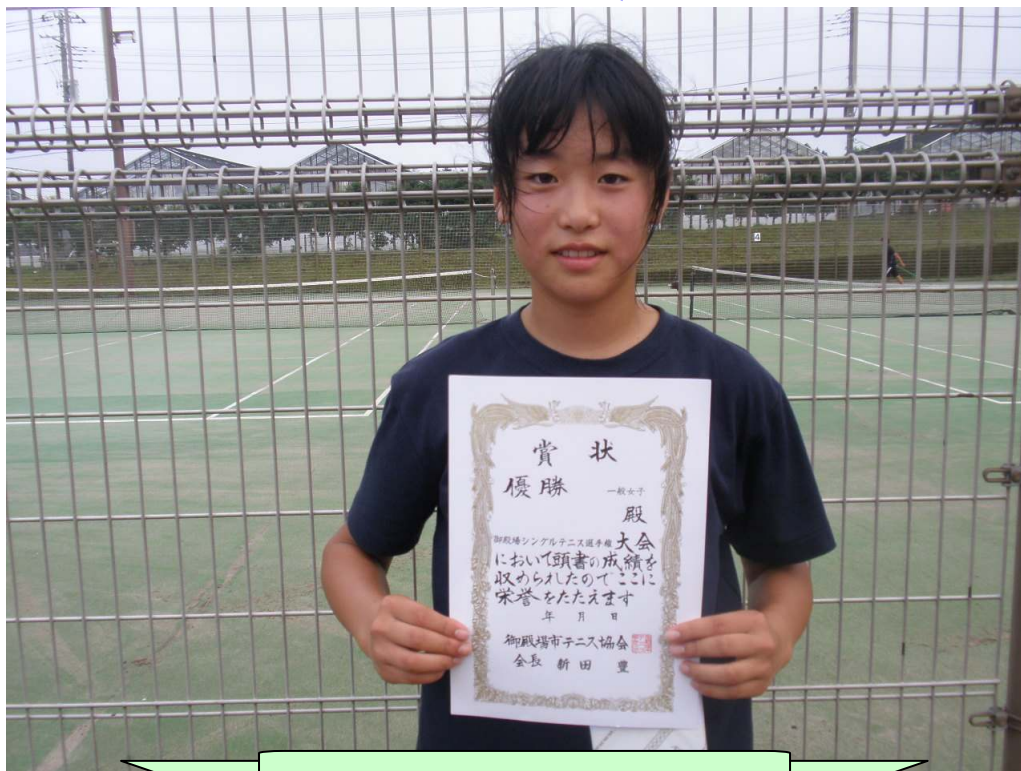 賞状
優勝
一般女子
殿
御殿場シングルテニス選手権大会
において頭書の成績を
収められたのでここに
栄誉をたたえます
年 月 日
御殿場市テニス協会
会長 新田 豊
4